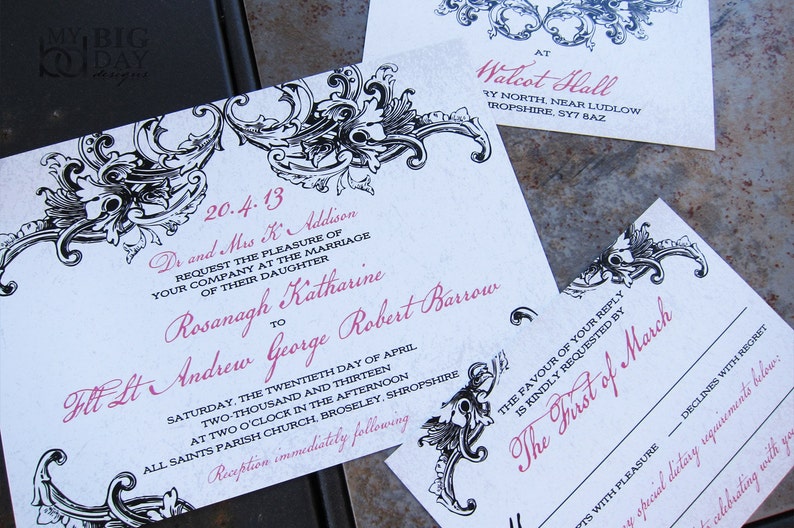 MY BIG DAY
designs
20.4.13
Dr and Mrs K Addison
REQUEST THE PLEASURE OF
YOUR COMPANY AT THE MARRIAGE
OF THEIR DAUGHTER
Rosanagh Katharine
TO
Flt Lt Andrew George Robert Barrow
SATURDAY, THE TWENTIETH DAY OF APRIL
TWO-THOUSAND AND THIRTEEN
AT TWO O'CLOCK IN THE AFTERNOON
ALL SAINTS PARISH CHURCH, BROSELEY, SHROPSHIRE
Reception immediately following
AT
Walcot Hall
RY NORTH, NEAR LUDLOW
SHROPSHIRE, SY7 8AZ
THE FAVOUR OF YOUR REPLY
IS KINDLY REQUESTED BY
The First of March
PTS WITH PLEASURE DECLINES WITH REGRET
y special dietary requirements below:
celebrating with you